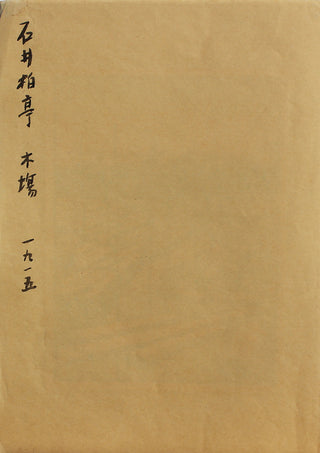 石井柏亭 木場 一九一五